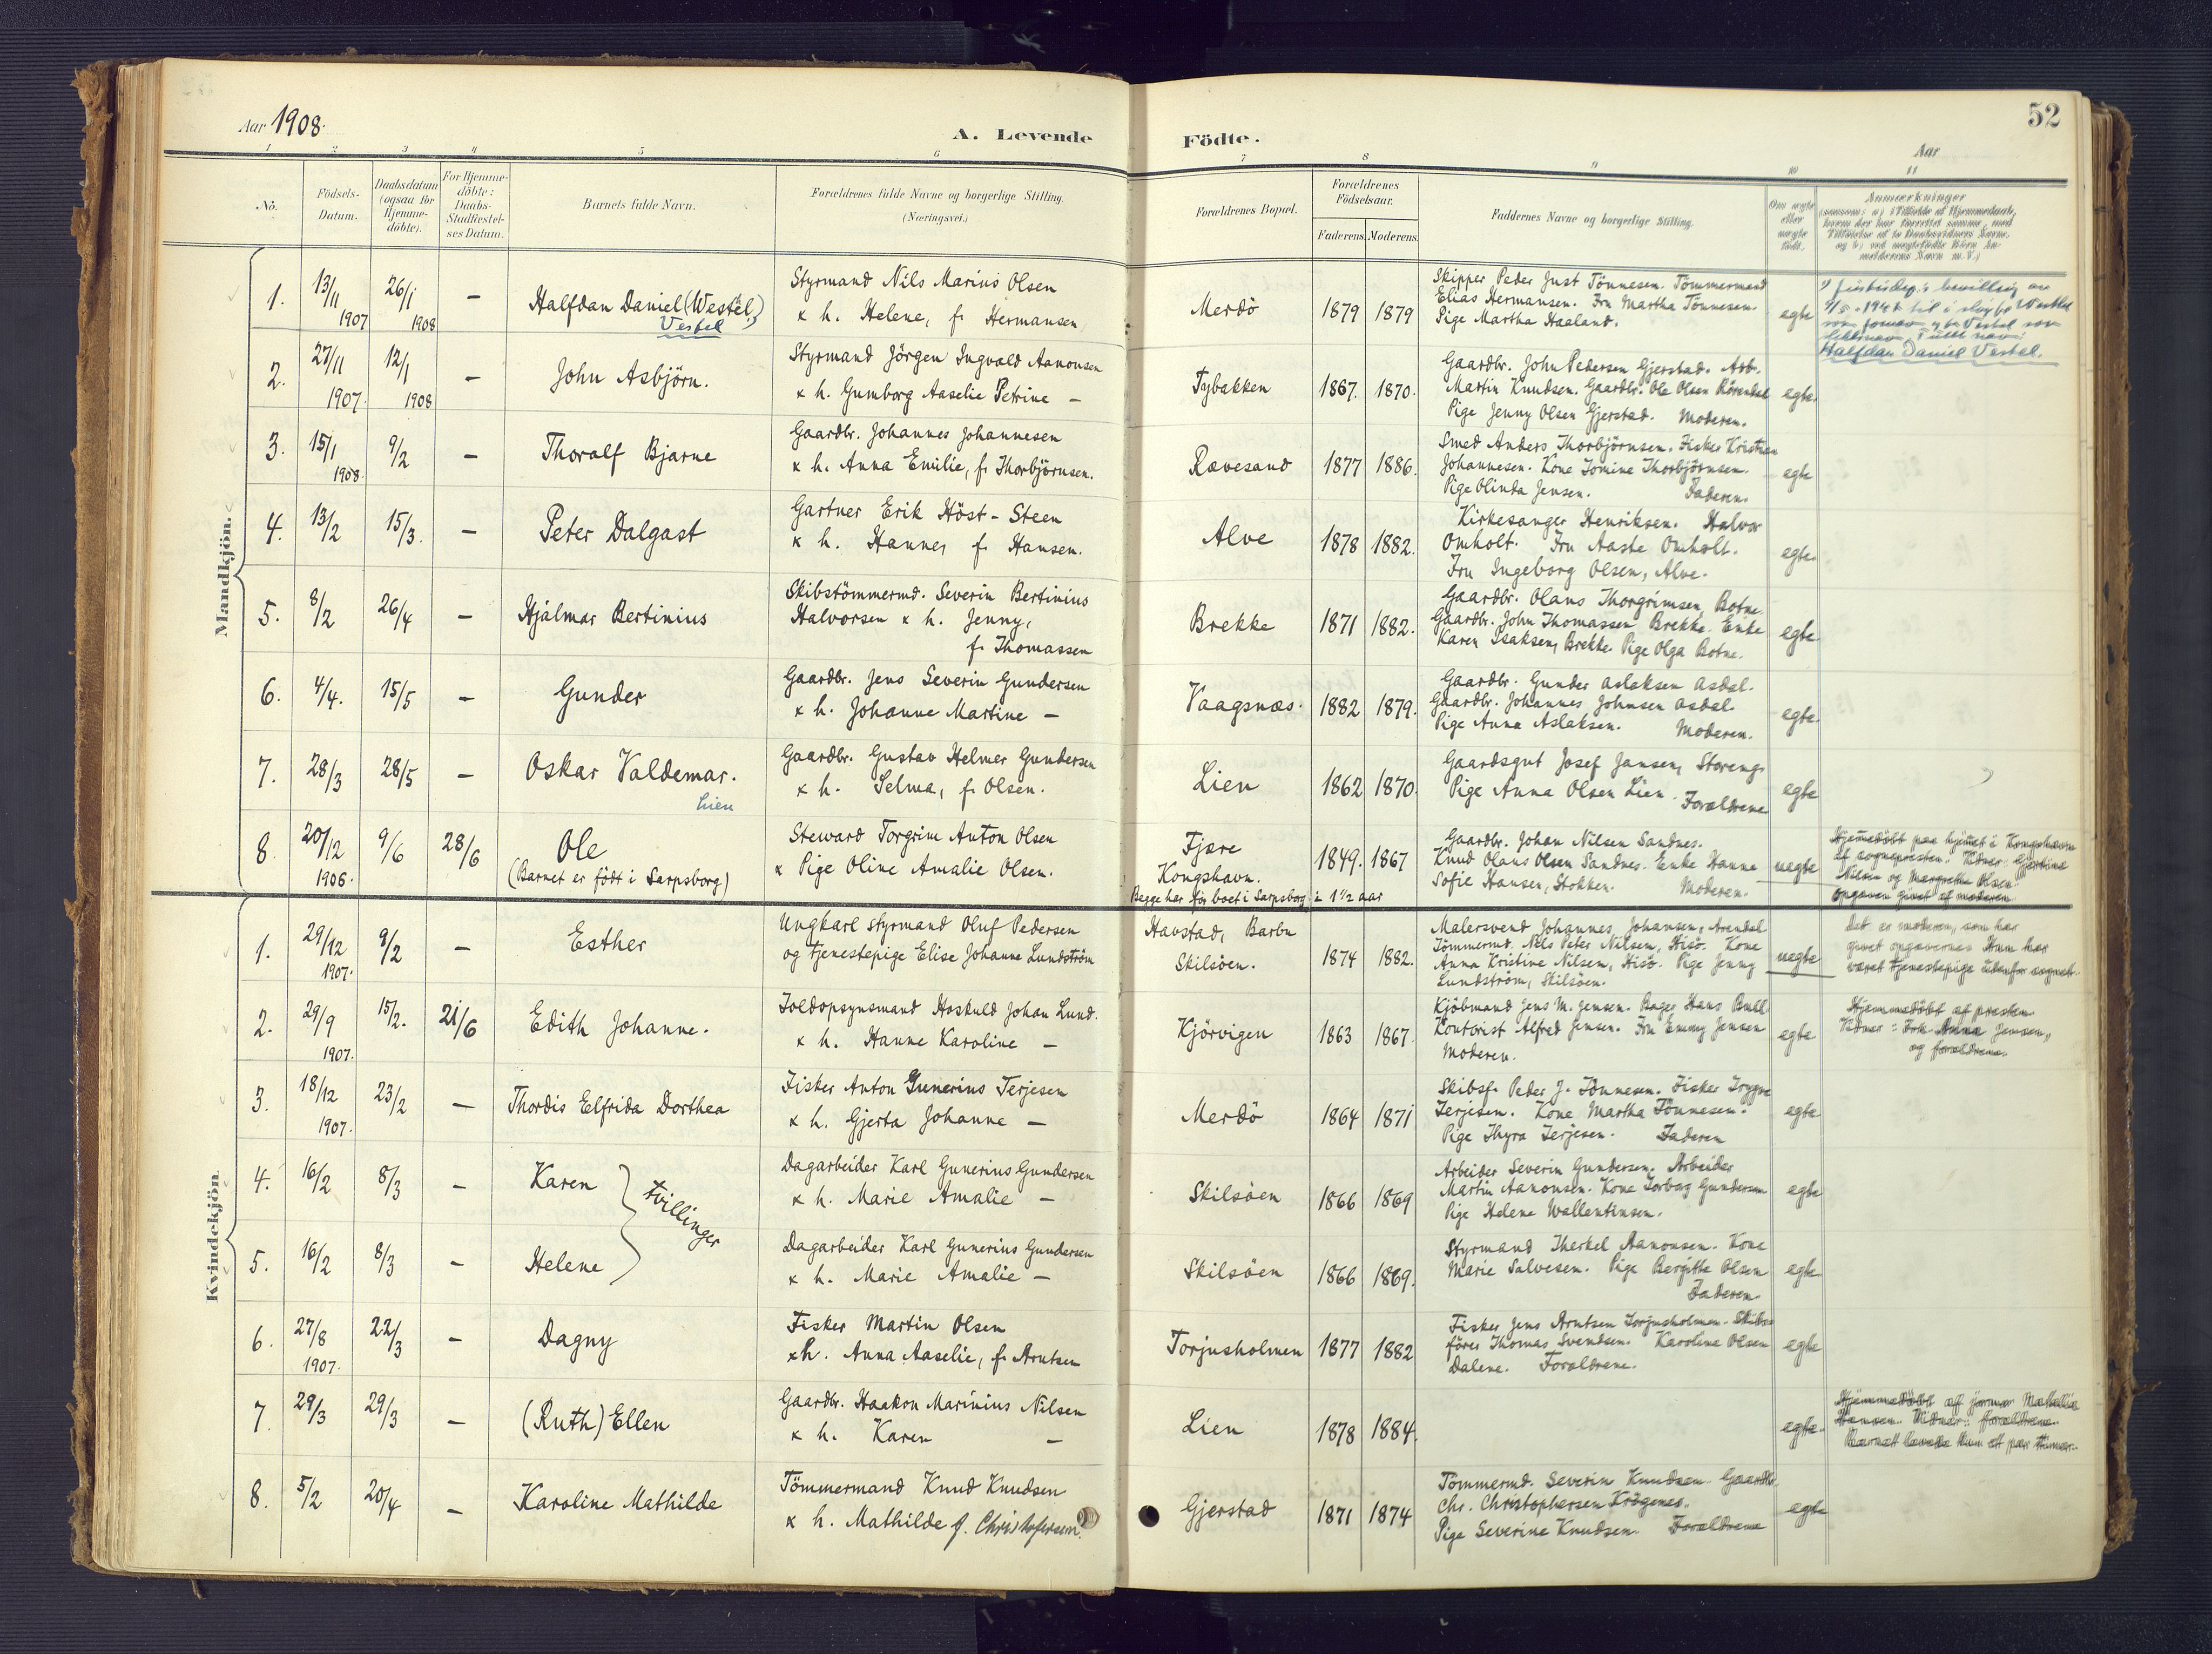 Aar 1908.
A. Levende Födte.
52
Aar
1 2 3 4 5 6 7 8 9 10 11
No.
Födsels-Datum.
Daabsdatum (ogsaa for Hjemme-döbte).
For Hjemme-döbte: Daabs-Stadfæstel-ses Datum.
Barnets fulde Navn.
Forældrenes fulde Navne og borgerlige Stilling.
(Næringsvei.)
Forældrenes Bopæl.
Forældrenes Födselsaar.
Faderens. Moderens.
Faddernes Navne og borgerlige Stilling.
Om ægte eller uægte födt.
Anmerkninger
Mandkjön.
1. 13/11 1907 26/1 1908 — Halfdan Daniel (Westel,)
Vestel
Styrmand Nils Marius Olsen
x h. Helene, f. Hermansen
Merdö 1879 1879
Skipper Peder Just Tönnesen. Tömmermand
Elias Hermansen. Fru Martha Tönnesen.
Pige Martha Haaland.
egte
Halfdan Daniel Vestel.
2. 27/11 1907. 12/1 1908 — John Asbjörn.
Styrmand Jörgen Ingvald Aanonsen
x h. Gumborg Aaselie Petrine —
Tybakken 1867. 1870.
Gaardbr. John Pedersen Gjerstad. Arb.
Martin Knudsen. Gaardbr. Ole Olsen
Pige Jenny Olsen Gjerstad. Moderen.
egte.
3. 15/1 1908. 9/2 — Thoralf Bjarne
Gaardbr. Johannes Johannesen
x h. Anna Emilie, f. Thorbjörnsen.
Rævesand 1877 1886.
Smed Anders Thorbjörnsen. Fisker Kristian
Johannesen. Kone Tomine Thorbjörnsen.
Pige Olinda Jensen. Faderen.
egte
4. 13/2 15/3. — Peter Dalgast
Gartner Erik Höst-Steen
x h. Hanne, f. Hansen.
Alve 1878 1882.
Kirkesanger Henriksen. Halvor
Omholt. Fru Aaste Omholt.
Fru Ingeborg Olsen, Alve.
egte.
5. 8/2 26/4 — Hjalmar Bertinius
Skibstömmermd. Severin Bertinius
Halvorsen x h. Jenny,
f. Thomassen
Brekke 1871 1882.
Gaardbr. Olaus Thorgrimsen, Botne.
Gaardbr. John Thomassen Brekke. Enke
Karen Isaksen, Brekke. Pige Olga Botne.
egte
6. 4/4. 15/5 — Gunder
Gaardbr. Jens Severin Gundersen
x h. Johanne Martine —
Vaagsnæs. 1882 1879.
Gaardbr. Gunder Aslaksen Asdal.
Gaardbr. Johannes Johnsen Asdal.
Pige Anna Aslaksen. Moderen.
egte.
7. 28/3 28/5 — Oskar Valdemar.
Lien
Gaardbr. Gustav Helmer Gundersen
x h. Selma, f. Olsen.
Lien 1862 1870.
Gaardsgut Josef Jansen, Storeng.
Pige Anna Olsen Lien. Forældrene
egte
8. 20/12 1906. 9/6 28/6 Ole
(Barnet er födt i Sarpsborg)
Steward Torgrim Anton Olsen
x Pige Oline Amalie Olsen.
Fjære
Kongshavn.
Begge har för boet i Sarpsborg i 1 1/2 aar
1849. 1867
Gaardbr. Johan Nilsen Sandnes.
Knud Olaus Olsen Sandnes. Enke Hanne
Sofie Hansen, Stokken. Moderen.
uegte
Hjemmedöbt paa hjemet i Kongshavn
af sognepresten. Vidner: Gjertine
Nilsen og Margrethe Olsen.
Opgaven givet af moderen
Kvindekjön.
1. 29/12 1907. 9/2 — Esther
Ungkarl styrmand Oluf Pedersen
og tjenestepige Elise Johanne Lundström
Havstad, Barbu
Skilsöen.
1874 1882.
Malersvend Johannes Johansen, Arendal
Tömmermd. Nils Peter Nilsen, Hisö. Kone
Anna Kristine Nilsen, Hisö. Pige Jenny
Lundström, Skilsöen.
uegte
Det er moderen, som har
givet opgaverne. Hun har
været tjenestepige udenfor sognet.
2. 29/9 1907. 15/2. 21/6 Edith Johanne.
Toldopsynsmand Hoskuld Johan Lund.
x h. Hanne Karoline —
Kjörvigen 1863 1867.
Kjöbmand Jens M. Jensen. Bager Hans Bull
Kontorist Alfred Jensen. Fru Emmy Jensen
Moderen.
egte
Hjemmedöbt af presten
Vidner: Frk. Anna Jensen,
og forældrene.
3. 18/12 1907. 23/2 — Thordis Elfrida Dorthea
Fisker Anton Gunerius Terjesen
x h. Gjerta Johanne —
Merdö 1864 1871
Skibsf. Peder J. Tönnesen. Fisker Trygve
Terjesen. Kone Martha Tönnesen.
Pige Thyra Terjesen. Faderen
egte
4. 16/2 8/3 — Karen
tvillinger
Dagarbeider Karl Gunerius Gundersen
x h. Marie Amalie —
Skilsöen 1866 1869
Arbeider Severin Gundersen. Arbeider
Martin Aanonsen. Kone Torborg Gundersen
Pige Helene Wallentinsen.
egte
5. 16/2 8/3 — Helene
Dagarbeider Karl Gunerius Gundersen
x h. Marie Amalie —
Skilsöen 1866 1869.
Styrmand Therkel Aanonsen. Kone
Marie Salvesen. Pige Bergitte Olsen
Faderen.
egte.
6. 27/8 1907. 22/3 — Dagny
Fisker Martin Olsen
x h. Anna Aaselie, f. Arntsen
Torjusholmen 1877 1882
Fisker Jens Arntsen Torjusholmen. Skibs-
förer Thomas Svendsen. Karoline Olsen
Dalene. Forældrene.
egte
7. 29/3 29/3 — (Ruth) Ellen
Gaardbr. Haakon Marinius Nilsen
x h. Karen —
Lien 1878 1884.
egte.
Hjemmedöbt af jormor Mathilde
Hansen. Vidner: forældrene.
Barnet levede kun et par timer.
8. 5/2 20/4 — Karoline Mathilde
Tömmermand Knud Knudsen
x h. Mathilde f. Christofersen.
Gjerstad 1871 1874
Tömmermd. Severin Knudsen. Gaardbr.
Chr. Christophersen Krögenes.
Pige Severine Knudsen. Forældrene
egte